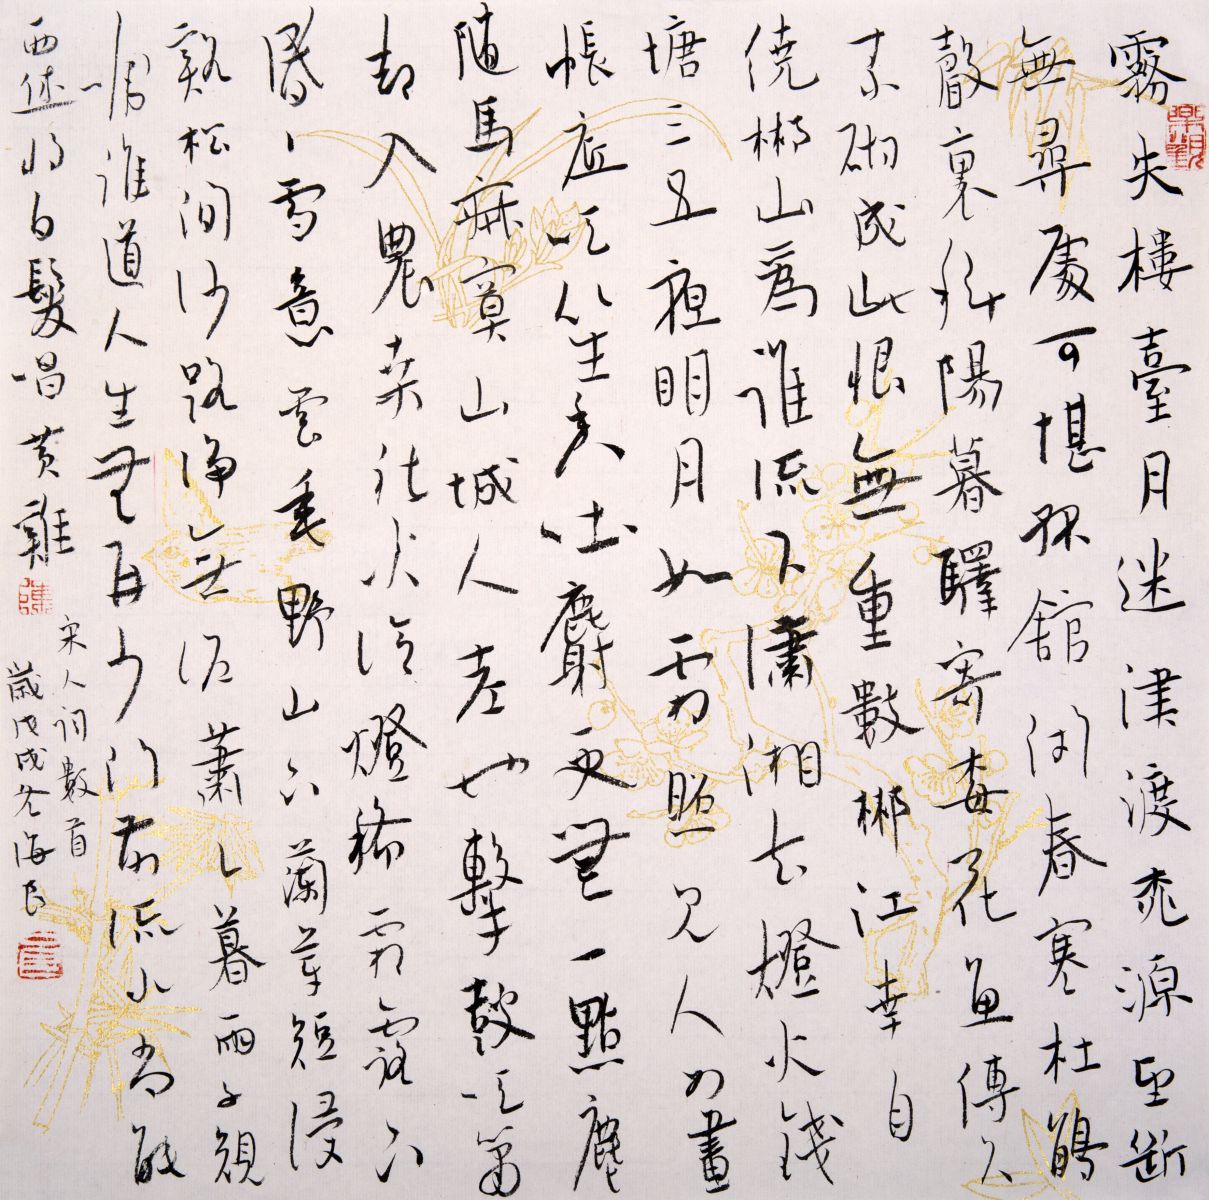 霧失樓臺月迷津渡桃源望斷
無尋處可堪孤館閉春寒杜鵑
聲裏斜陽暮驛寄梅花魚傳尺
素砌成此恨無重數郴江幸自
繞郴山爲誰流下瀟湘去燈火錢
塘三五夜明月如霜照見人如畫
帳底吹笙香吐麝更無一點塵
隨馬寂寞山城人老也擊鼓吹簫
却入農桑社火冷燈稀霜露下
昏〃雪意雲垂野山下蘭芽短浸
谿松間沙路净無泥蕭〃暮雨子規
啼誰道人生無再少門前流水尚能
西休將白髮唱黄雞
宋人詞數首
歲戊戌冬海良